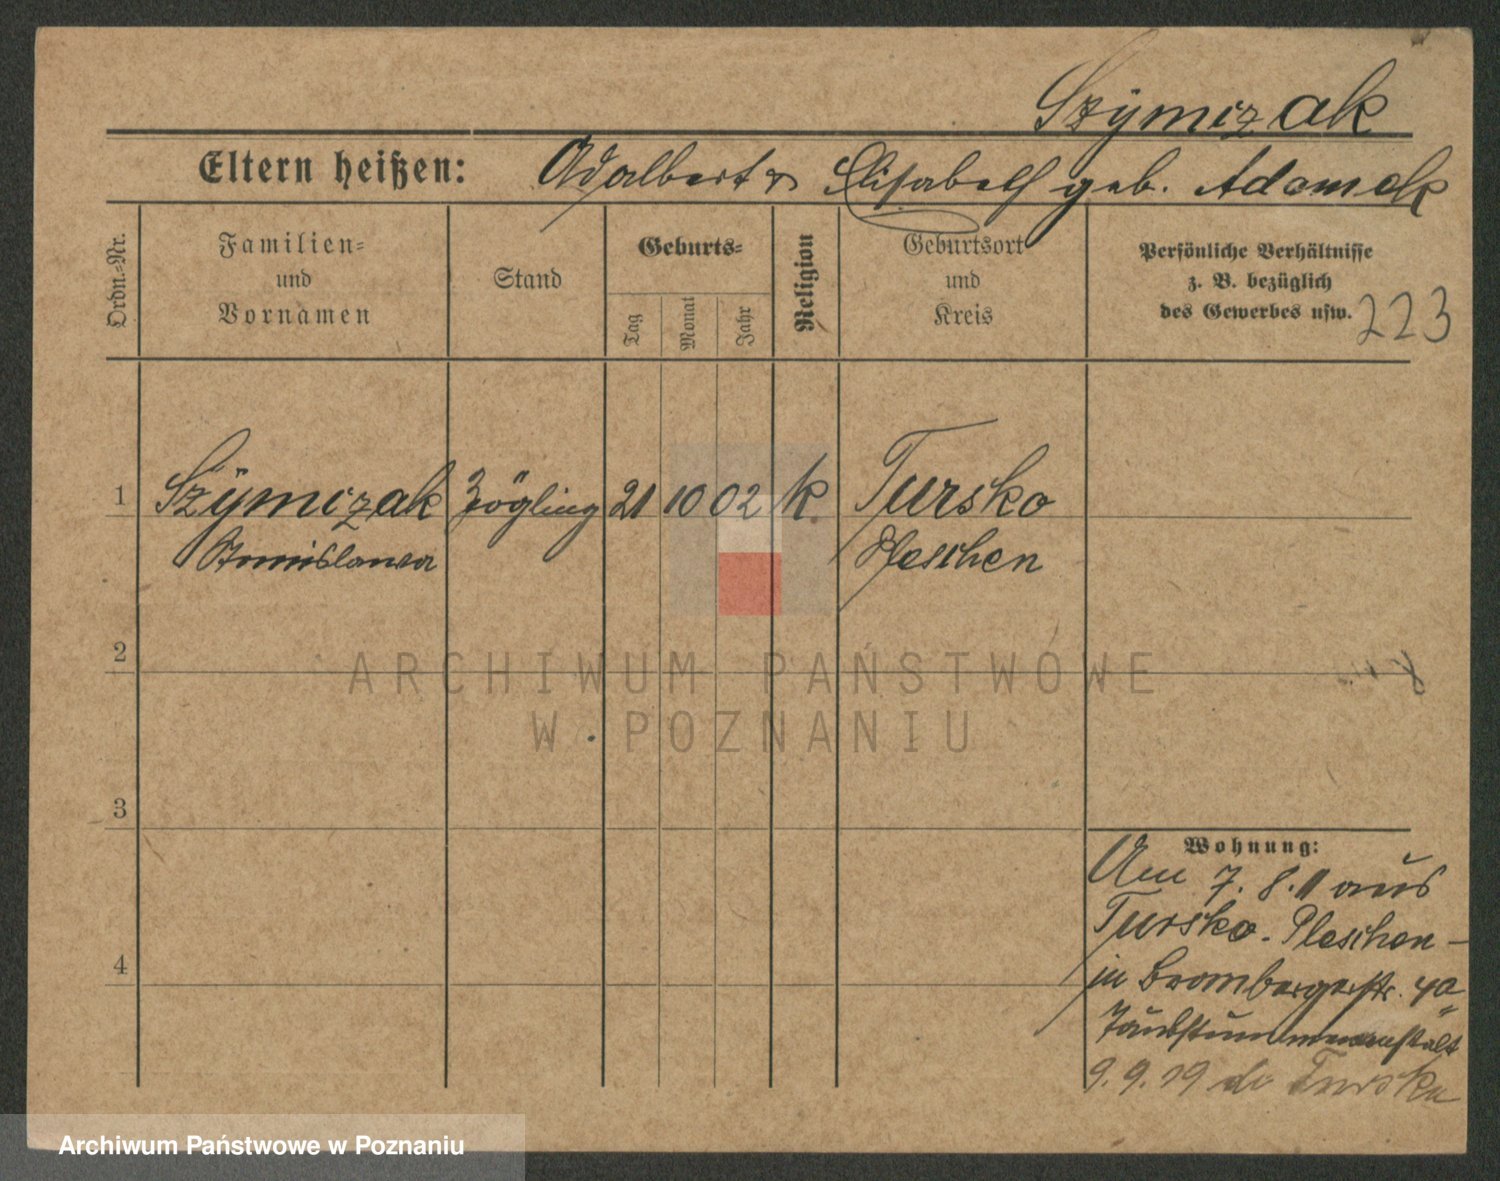 Szÿmczak
Eltern heißen: Adalbert & Elisabeth geb. Adamek
Ordn.=Nr.
Familien=
und
Vornamen
Stand
Geburts=
Tag
Monat
Jahr
Religion
Geburtsort
und
Kreis
Persönliche Verhältnisse
z. B. bezüglich
des Gewerbes usw.
223
1 Szÿmczak Zögling 21 10 02 k Tursko
Stanislawa Pleschen
2
ARCHIWUM PAŃSTWOWE
W POZNANIU
3
Wohnung:
Am 7. 8. 11 aus
Tursko. Pleschen –
in Brombergerstr. 4a
Taubstummenanstalt
4
9. 9. 19 do Turska
Archiwum Państwowe w Poznaniu